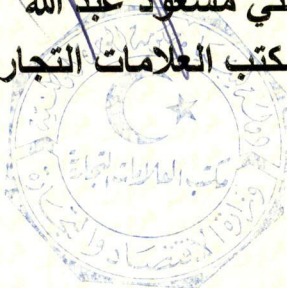 لي مسعود عبد الله
كتب العلامات التجار
مكتب العلامات التجارية
وزارة الاقتصاد والتجارة